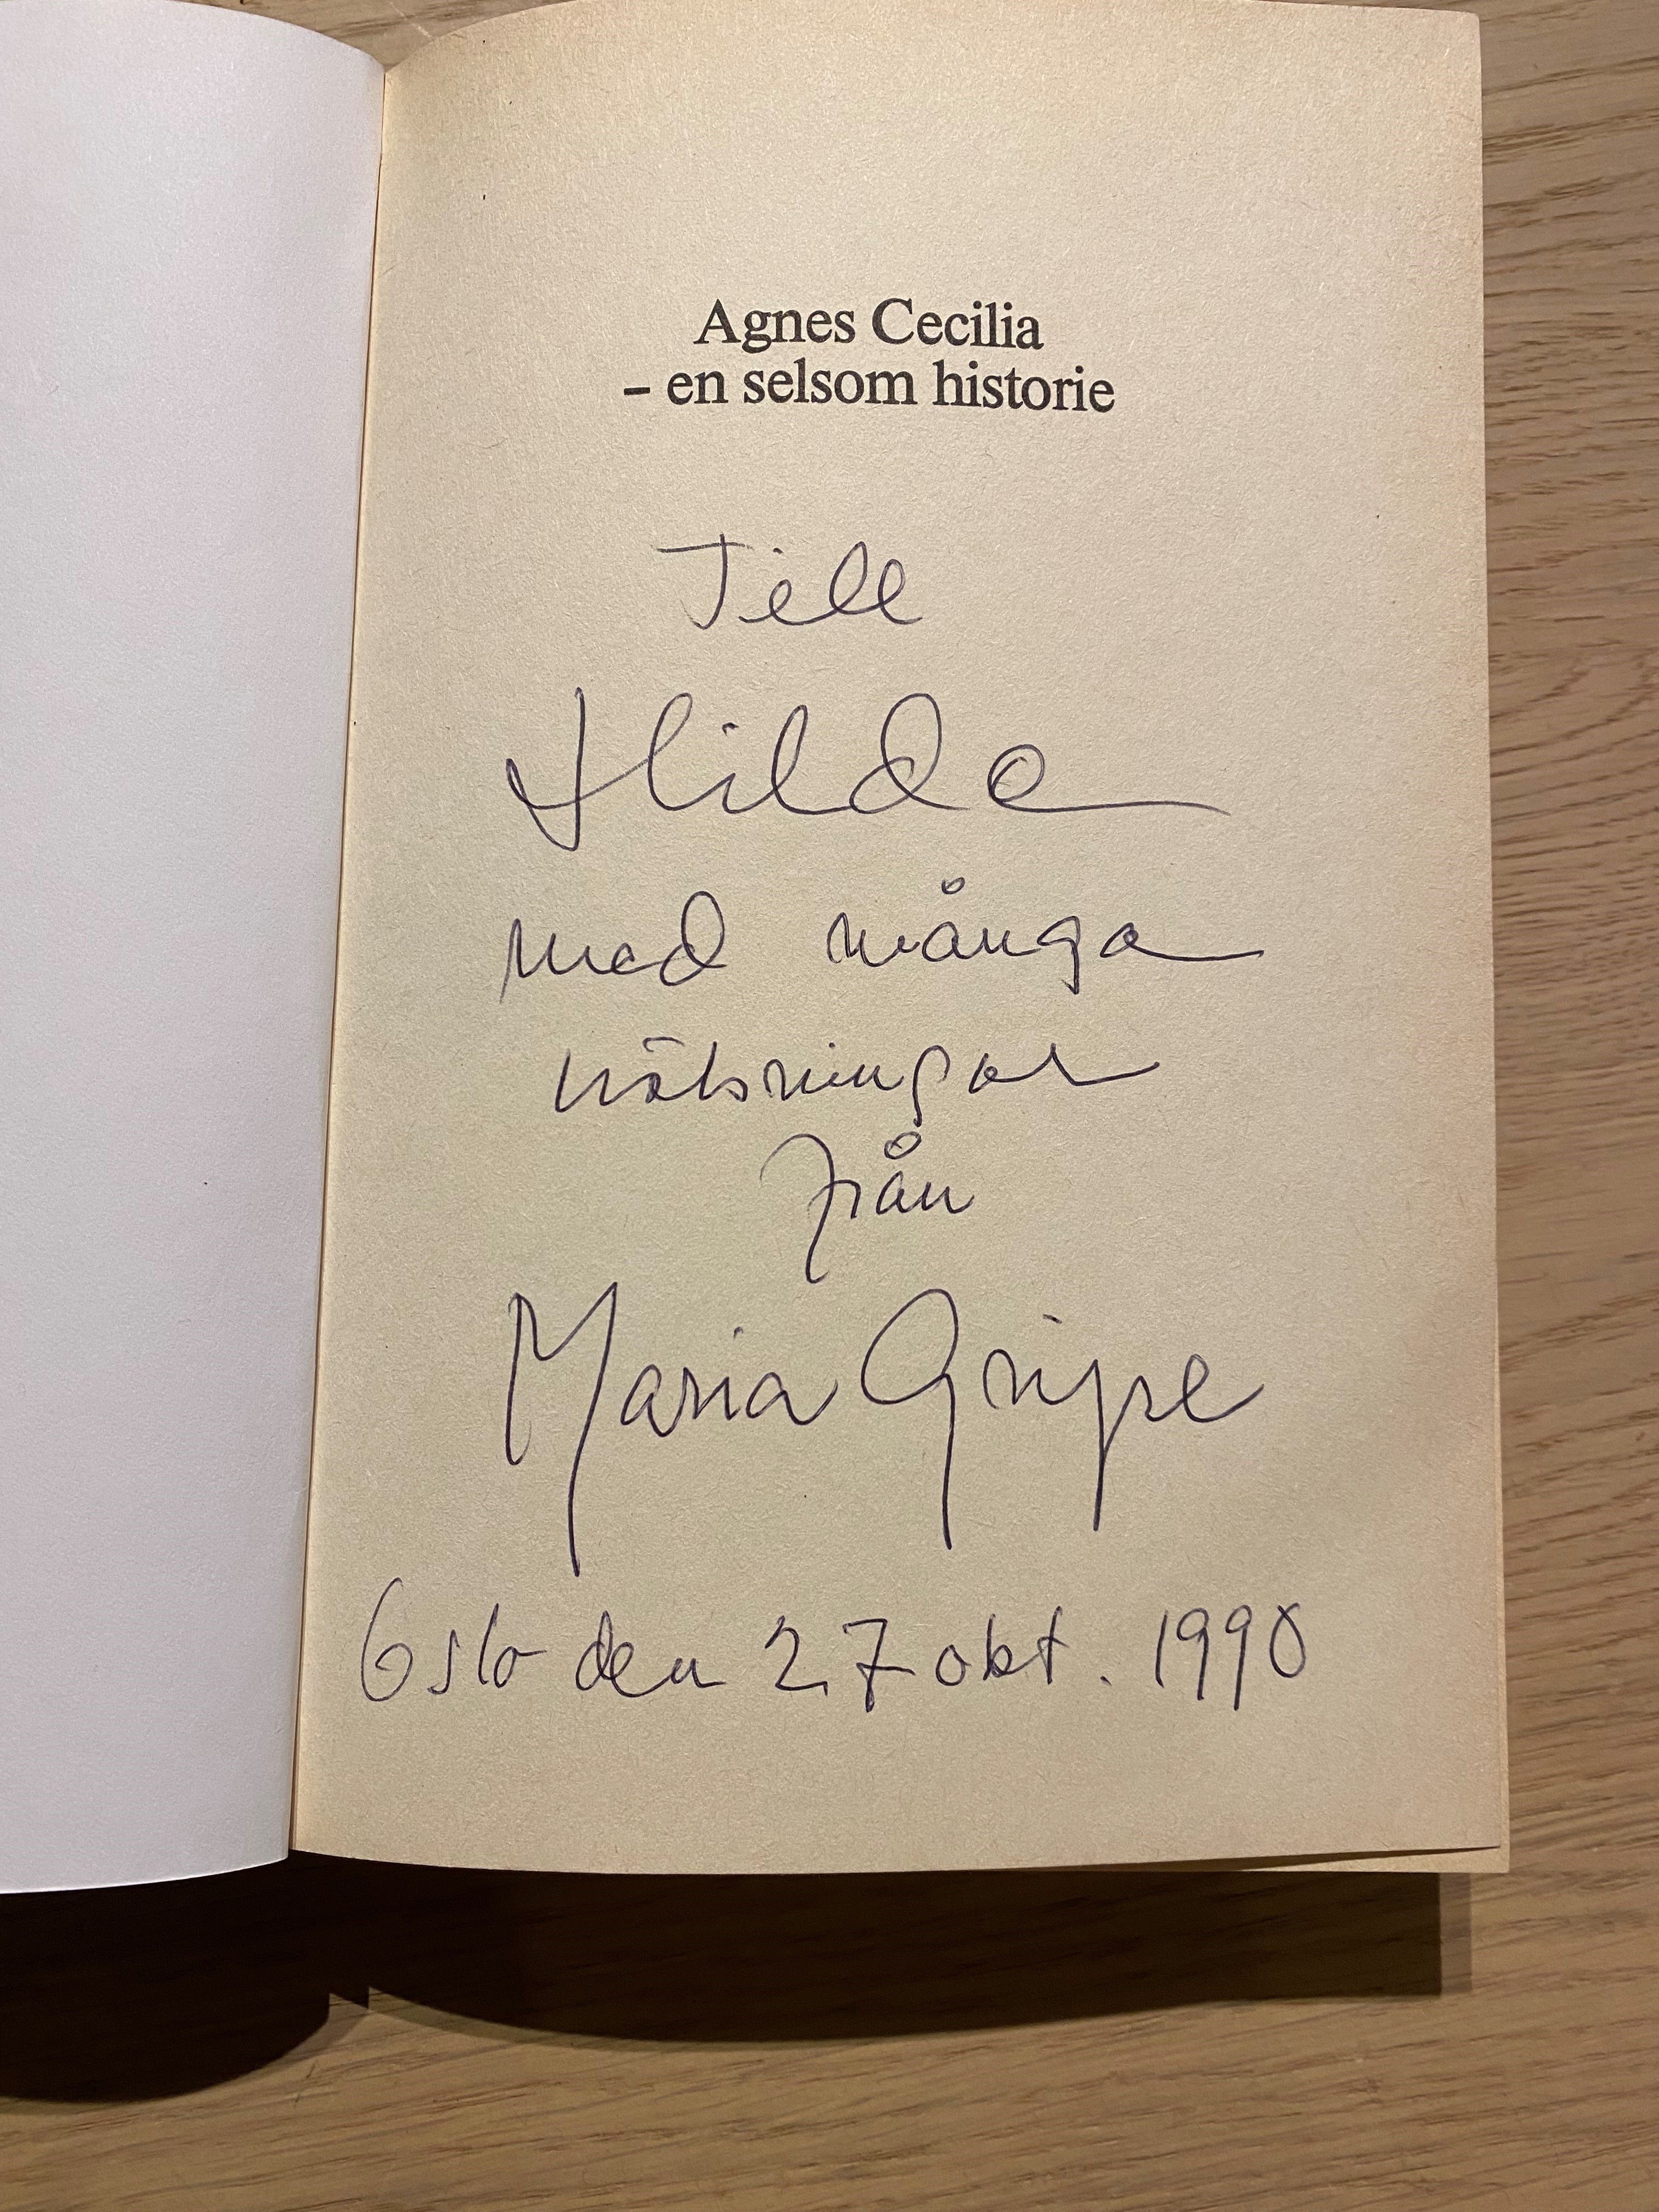 Agnes Cecilia
– en selsom historie
Till
Hilda
med många
hälsningar
från
Maria Gripe
Oslo den 27 okt. 1990